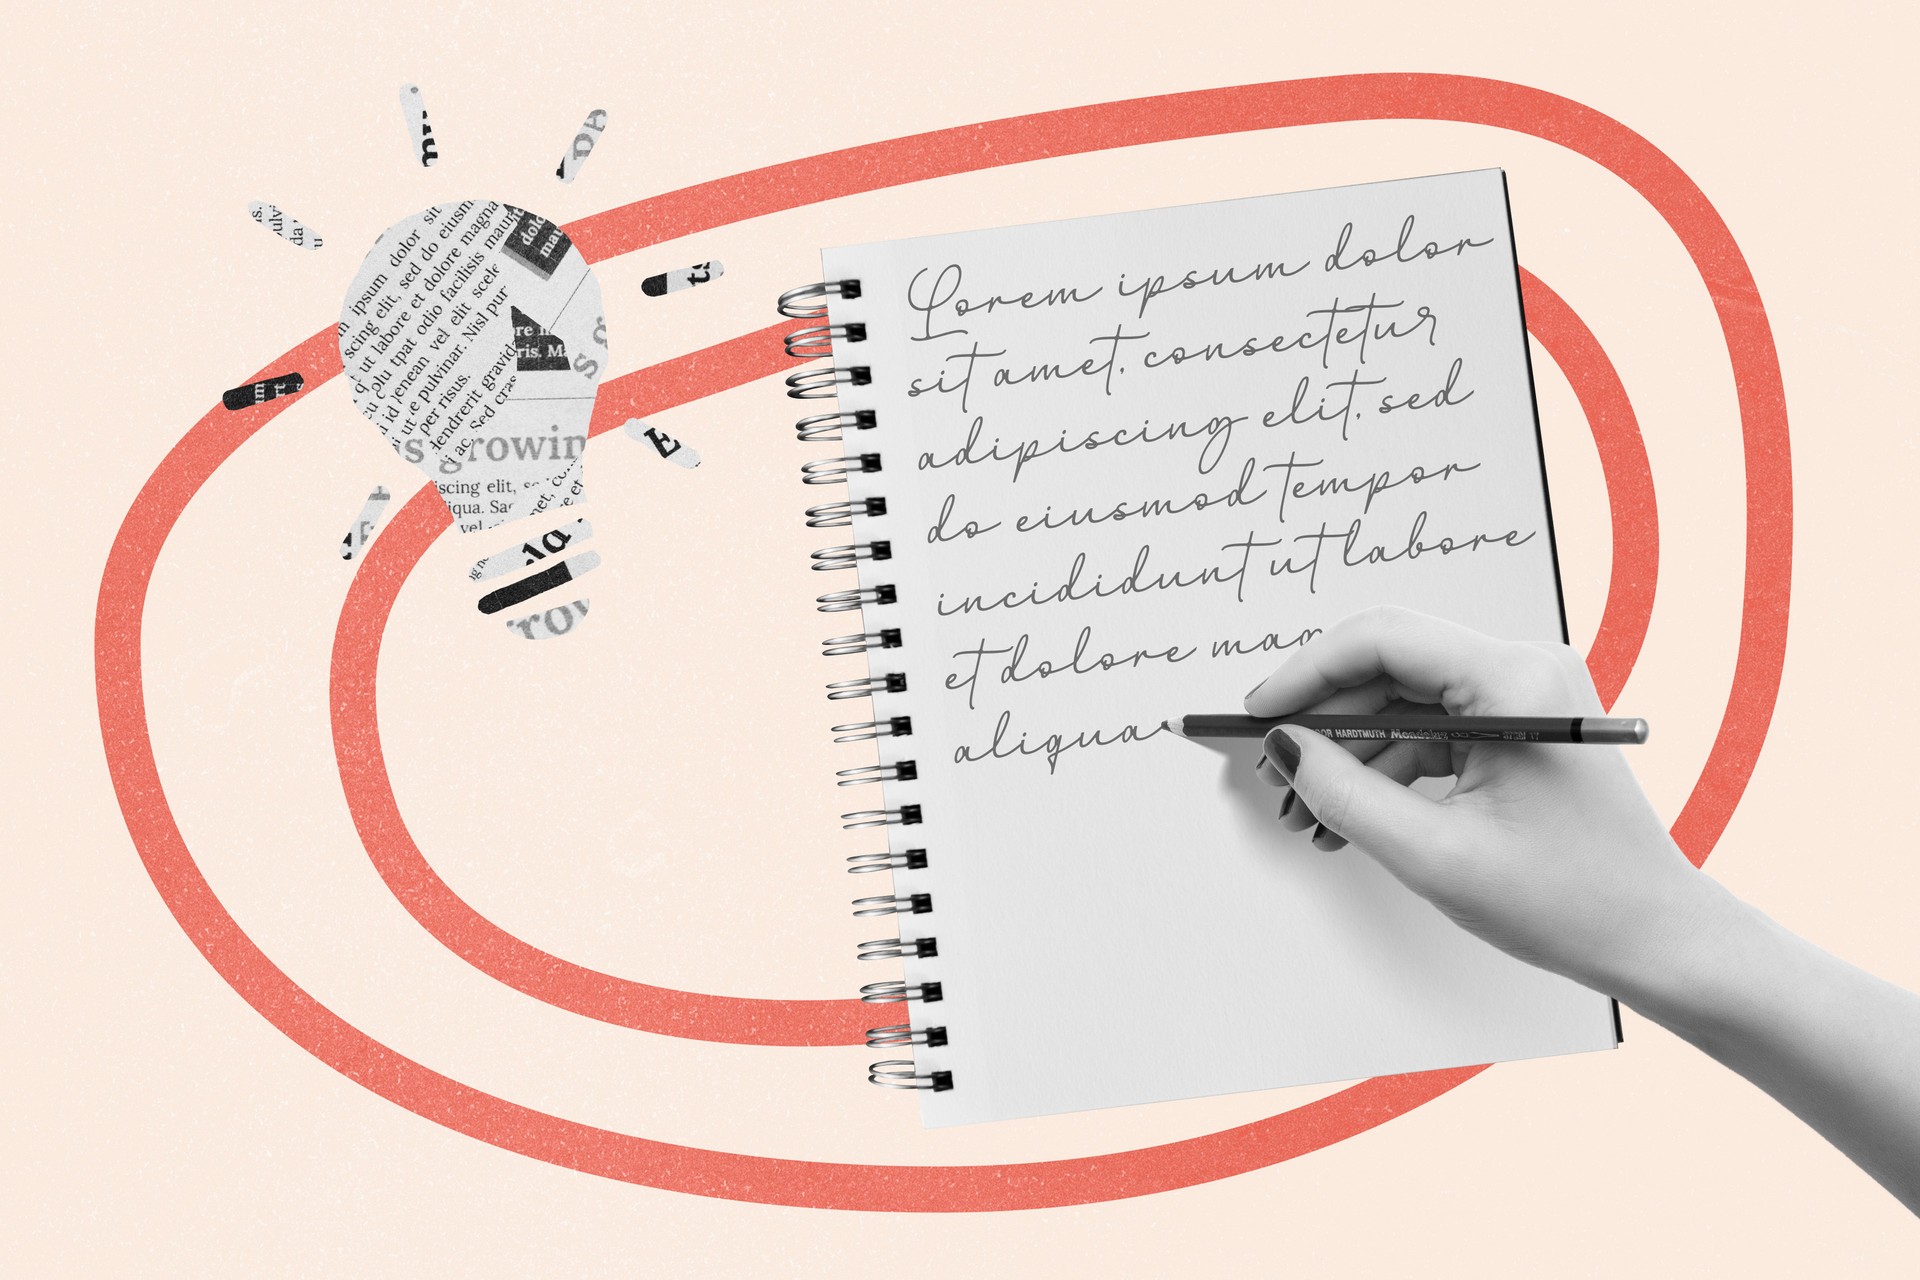 Lorem ipsum dolor
sit amet, consectetur
adipiscing elit, sed
do eiusmod tempor
incididunt ut labore
et dolore
aliqua
HARDTMUTH Mondeluz
ipsum dolor sit
scing elit, sed do eiusm
ut labore et dolore magna
tpat odio facilisis mauri
enean vel elit scele
pulvinar. Nisl pur
per risus.
endrerit gravida
ac. Sed cras
s growin
iscing elit, se
iqua. Sa
vel
dolo
mau
re
ris. Ma
s g
met, co
e et
row
E